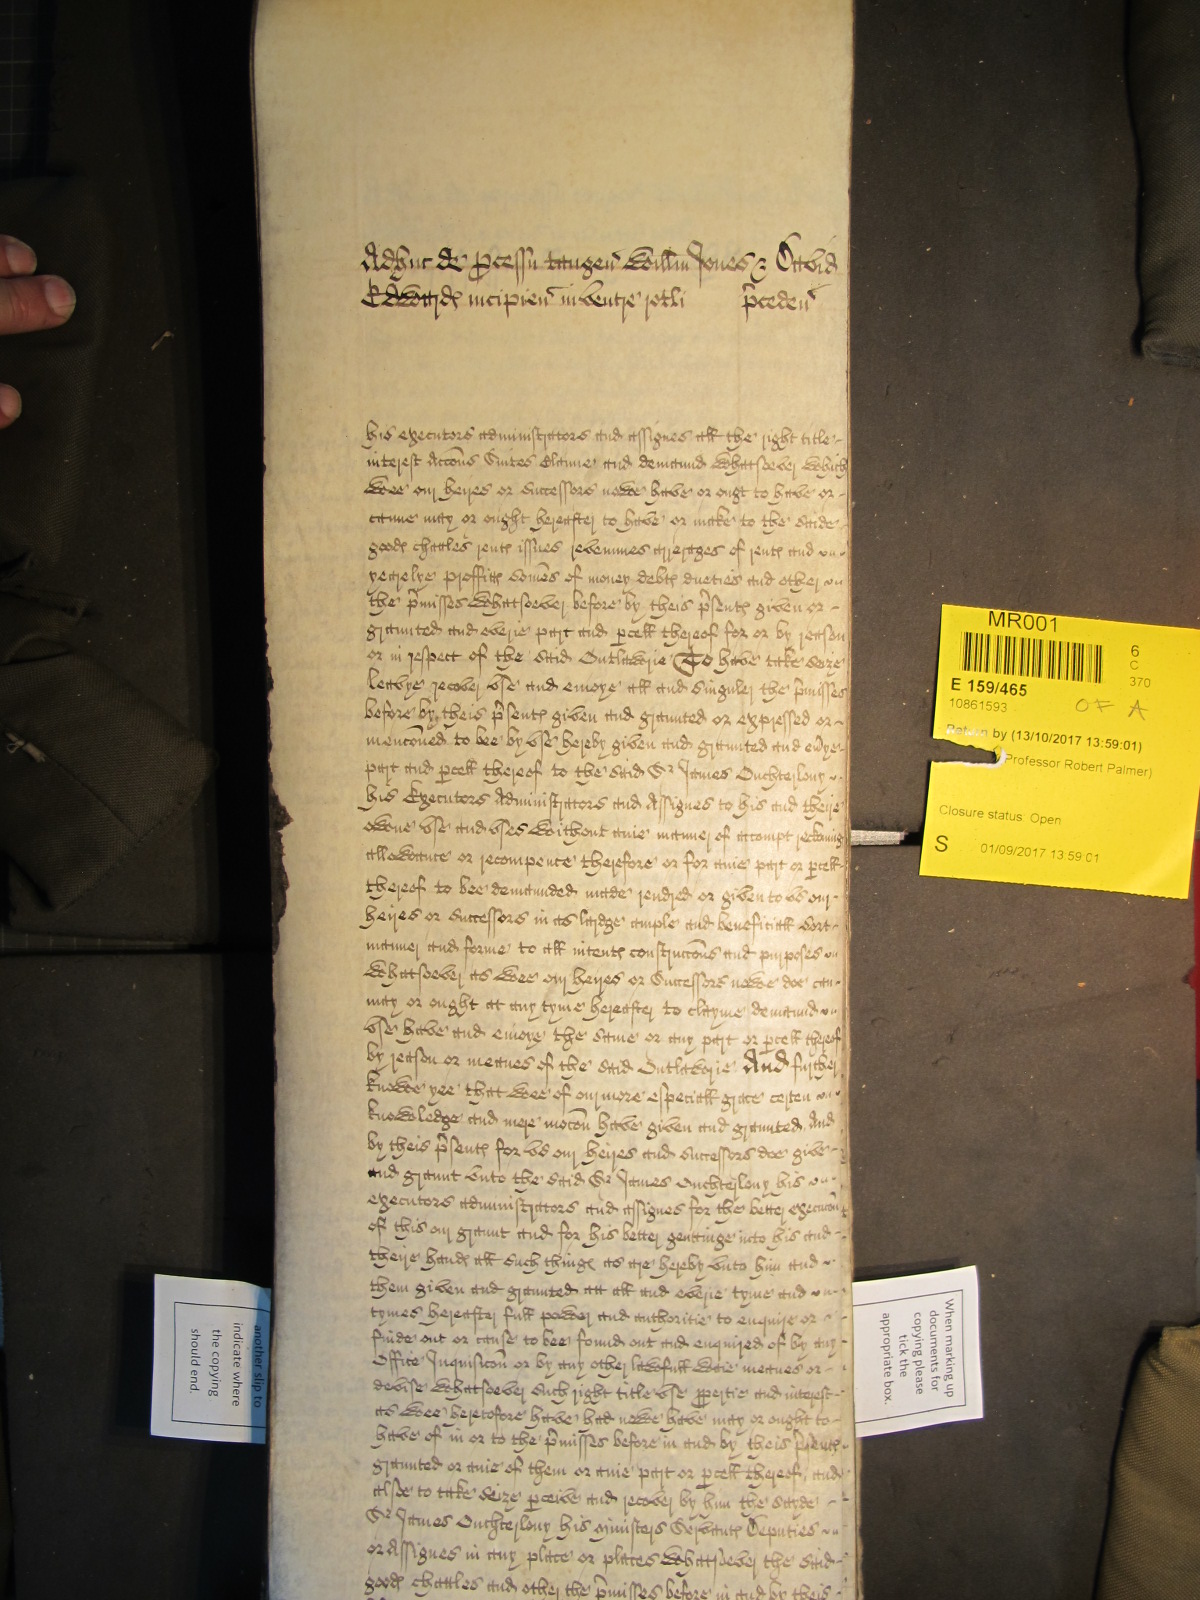 Adhuc de p̱cessu tangen̄ Willm̄ Jones & David
Edwardꝭ incipien̄ in ventre rotli p̄ceden̄
his executors administrators and assignes all the right title
interest Accōns Suites Clame and demaund whatsoever which
wee our heires or successors nowe have or ought to have or
canne may or ought hereafter to have or make to the saide
goodꝭ chattles rentꝭ issues revennues arrerages of rentꝭ and
yearelye proffittꝭ som̄es of money debtꝭ dueties and other
the p̄misses whatsoever before by theis p̄sentꝭ given or
graunted and everie part and p̱cell thereof for or by reason
or in respect of the said Outlawrie To have take seize
leavye recover vse and enioye all and singuler the p̄misses
before by theis p̄sentꝭ given and graunted or expressed or
menc̄oned to bee by vse hereby given and graunted and everye
part and p̱cell thereof to the said Sr James Ouchterlony
his Executors Administrators and Assignes to his and theire
owne vse and vses without anie manner of accompt reckoning
allowance or recompence therefore or for anie part or p̱cell
thereof to bee demaunded made rendred or given to vs our
heires or successors in as lardge ample and beneficiall sort
manner and forme to all intentꝭ construcc̄ons and purposes
whatsoever as wee our heires or Successors nowe doe can
may or ought at any tyme hereafter to clayme demaund
vse have and enioye the same or any part or p̱cell thereof
by reason or meanes of the said Outlawrie And further
knowe yee that wee of our more especiall grace certen
knowledge and mere moc̄on have given and graunted And
by theis p̄sentꝭ for vs our heires and successors doe give
and graunt vnto the said Sr James Ouchterlony his
executors administrators and assignes for the better execuc̄on
of this our graunt and for his better gettinge into his and
theire handꝭ all such thingꝭ as are hereby vnto him and
them given and graunted att all and everie tyme and
tymes hereafter full power and authoritie to enquire or
finde out or cause to bee found out and enquired of by any
Office Inquisic̄on or by any other lawfull waie meanes or
devise whatsoever such right title vse p̱pertie and interest
as wee heretofore have had nowe have may or ought to
have of in or to the p̄misses before in and by theis p̄sentꝭ
graunted or anie of them or anie part or p̱cell thereof, and
alsoe to take seize p̱ceive and recover by him the sayde
Sr James Ouchterlony his ministers Servantꝭ Deputies
or Assignes in any place or places whatsoever the said
goodꝭ chattles and other the p̄misses before in and by theis
MR001
6
C
370
E 159/465
10861593
OF A
Return by (13/10/2017 13:59:01)
Professor Robert Palmer)
Closure status: Open
S 01/09/2017 13:59:01
another slip to
indicate where
the copying
should end.
When marking up
documents for
copying please
tick the
appropriate box.